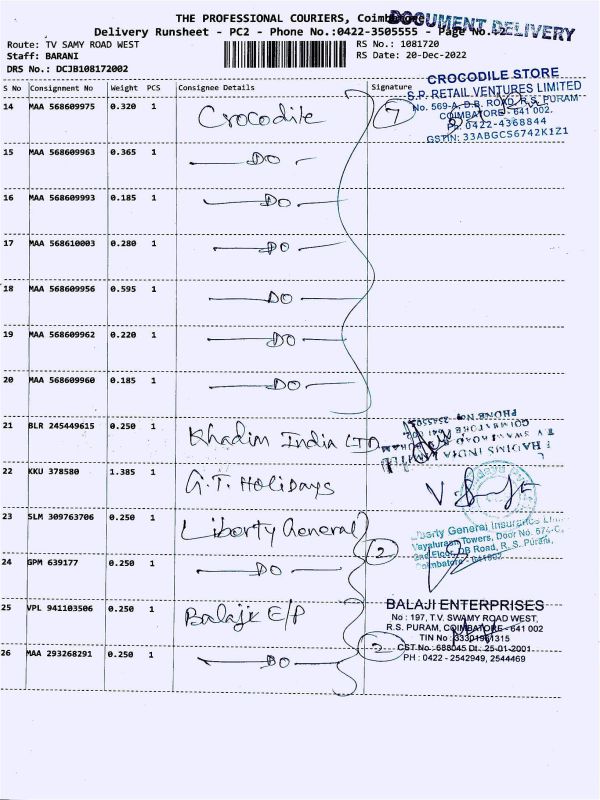 THE PROFESSIONAL COURIERS, Coimbatore
DOCUMENT DELIVERY
Delivery Runsheet - PC2 - Phone No.:0422-3505555 - Page No.
Route: TV SAMY ROAD WEST
RS No.: 1081720
Staff: BARANI
RS Date: 20-Dec-2022
DRS No.: DCJB108172002
S No Consignment No Weight PCS Consignee Details Signature
CROCODILE STORE
S.P. RETAIL VENTURES LIMITED
No. 569-A, D.B. ROAD, R.S. PURAM
COIMBATORE - 641 002.
Ph: 0422-4368844
GSTIN: 33ABGCS6742K1Z1
14 MAA 568609975 0.320 1 Crocodile 7
15 MAA 568609963 0.365 1 DO
16 MAA 568609993 0.185 1 DO
17 MAA 568610003 0.280 1 DO
18 MAA 568609956 0.595 1 DO
19 MAA 568609962 0.220 1 DO
20 MAA 568609960 0.185 1 DO
21 BLR 245449615 0.250 1 Khadim India LTD
KHADIMS INDIA LIMITED
T.V. SWAMI ROAD
COIMBATORE - 641 002
PHONE No:
22 KKU 378580 1.385 1 G.T. Holidays
23 SLM 309763706 0.250 1 Liberty General 2
Liberty General Insurance
Vayaluraan Towers, Door No. 674-C
2nd Floor, DB Road, R. S. Puram,
Coimbatore - 641002
24 GPM 639177 0.250 1 DO
25 VPL 941103506 0.250 1 Balaji E/P 2
BALAJI ENTERPRISES
No : 197, T.V. SWAMY ROAD WEST,
R.S. PURAM, COIMBATORE - 641 002
TIN No : 33301961315
CST No : 688045 Dt. 25-01-2001
PH : 0422 - 2542949, 2544469
26 MAA 293268291 0.250 1 DO